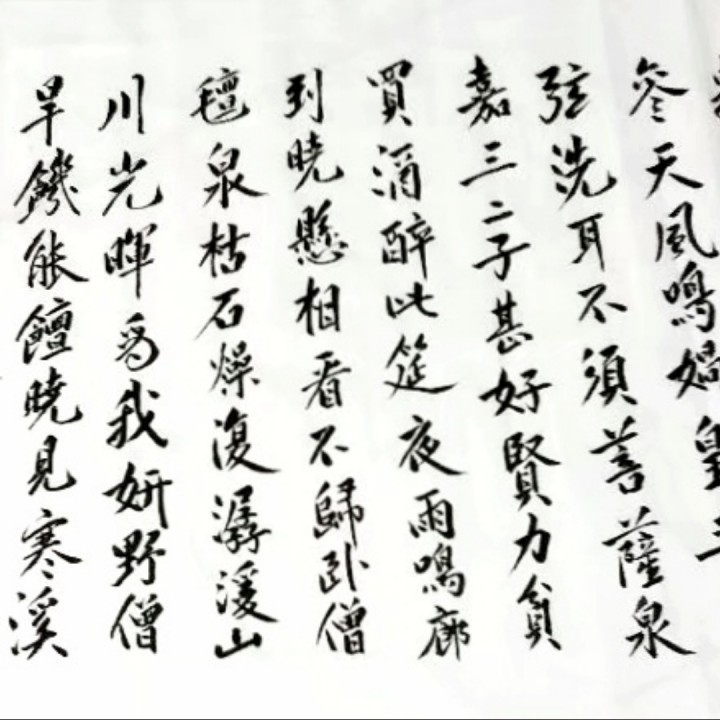 參天風鳴媧皇
弦洗耳不須菩薩泉
嘉三二子甚好賢力貧
買酒醉此筵夜雨鳴廊
到曉懸相看不歸臥僧
氈泉枯石燥復潺湲山
川光暉為我妍野僧
旱饑能饘曉見寒溪